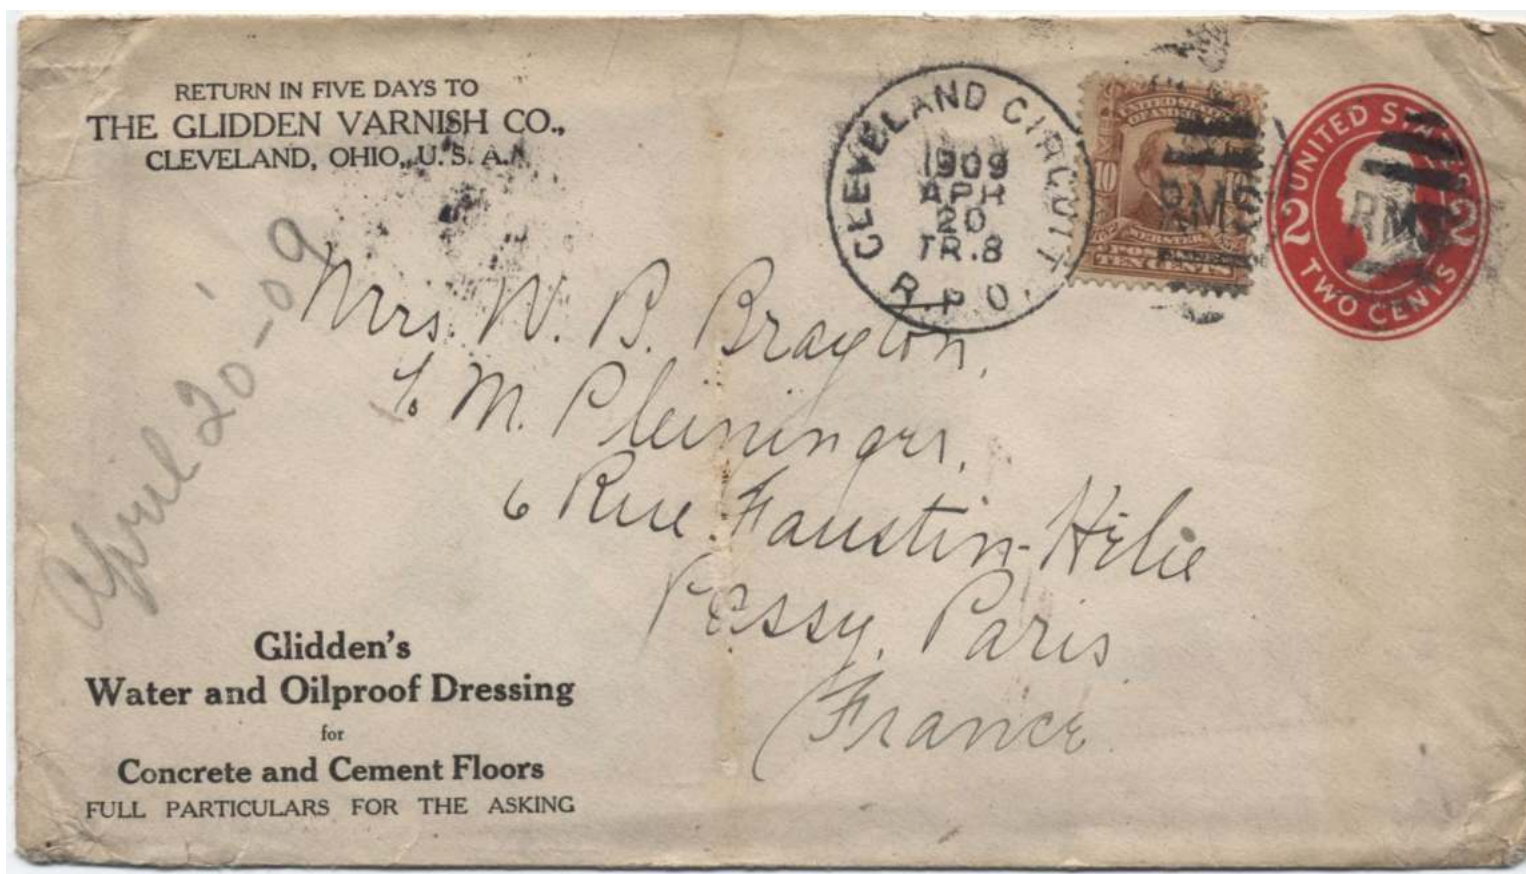 RETURN IN FIVE DAYS TO
THE GLIDDEN VARNISH CO.,
CLEVELAND, OHIO, U.S.A.
CLEVELAND CIRCUIT
1909
APR
20
TR.8
R.P.O.
UNITED STATES
OF AMERICA
10
WEBSTER
TEN CENTS
RMS
UNITED STATES
2 2
RMS
TWO CENTS
April 20-09
Mrs. W. B. Brayton,
M. Pleininger,
6 Rue Faustin-Hélie
Passy, Paris
France
Glidden's
Water and Oilproof Dressing
for
Concrete and Cement Floors
FULL PARTICULARS FOR THE ASKING